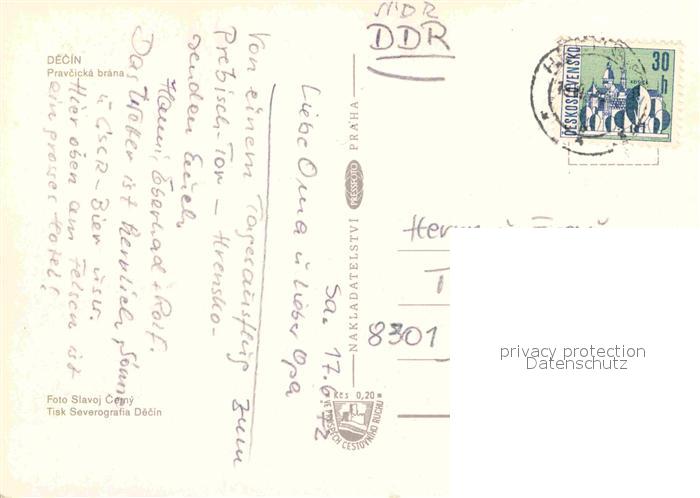 DĚČÍN
Pravčická brána
NDR
DDR
ČESKOSLOVENSKO
30 h
KOŠICE
Sa. 17.6.72
Liebe Oma u. lieber Opa
Von einem Tagesausflug zum
Prebisch-Tor - Hrensko-
senden Euch
Hanni, Eberhard + Rolf.
Das Wetter ist herrlich, Sonne
u. ČSSR-Bier usw.
Hier oben am Felsen ist
ein grosses Hotel!
NAKLADATELSTVÍ PRESSFOTO PRAHA
Herrn u. Frau
8301
privacy protection
Datenschutz
Kčs 0,20
VE PROSPĚCH CESTOVNÍHO RUCHU
Foto Slavoj Černý
Tisk Severografia Děčín